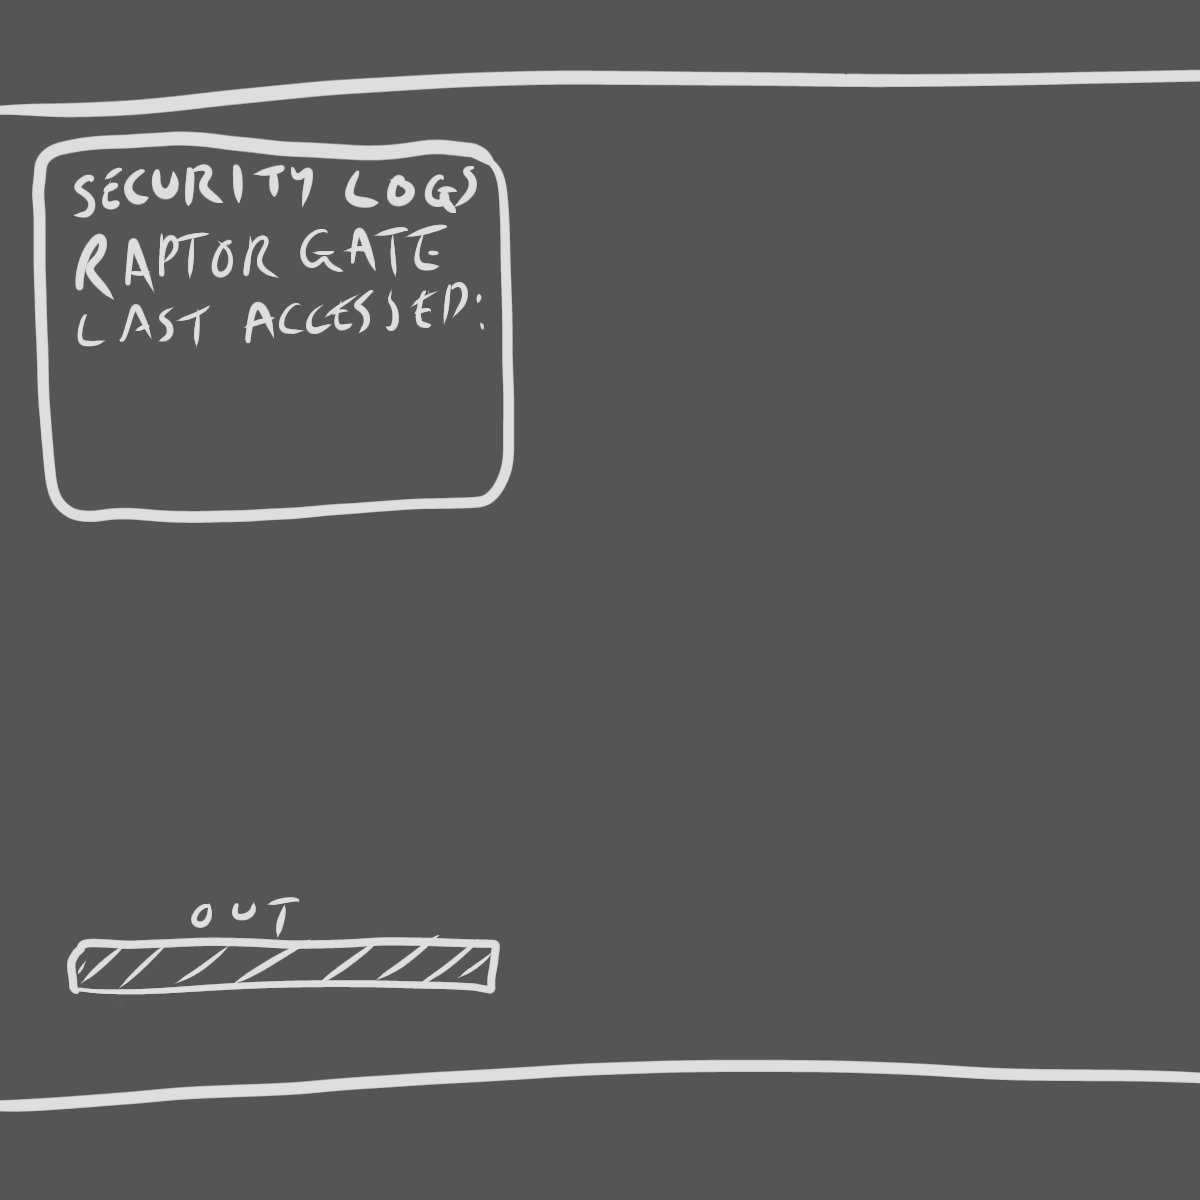 SECURITY LOGS
RAPTOR GATE
LAST ACCESSED:
OUT